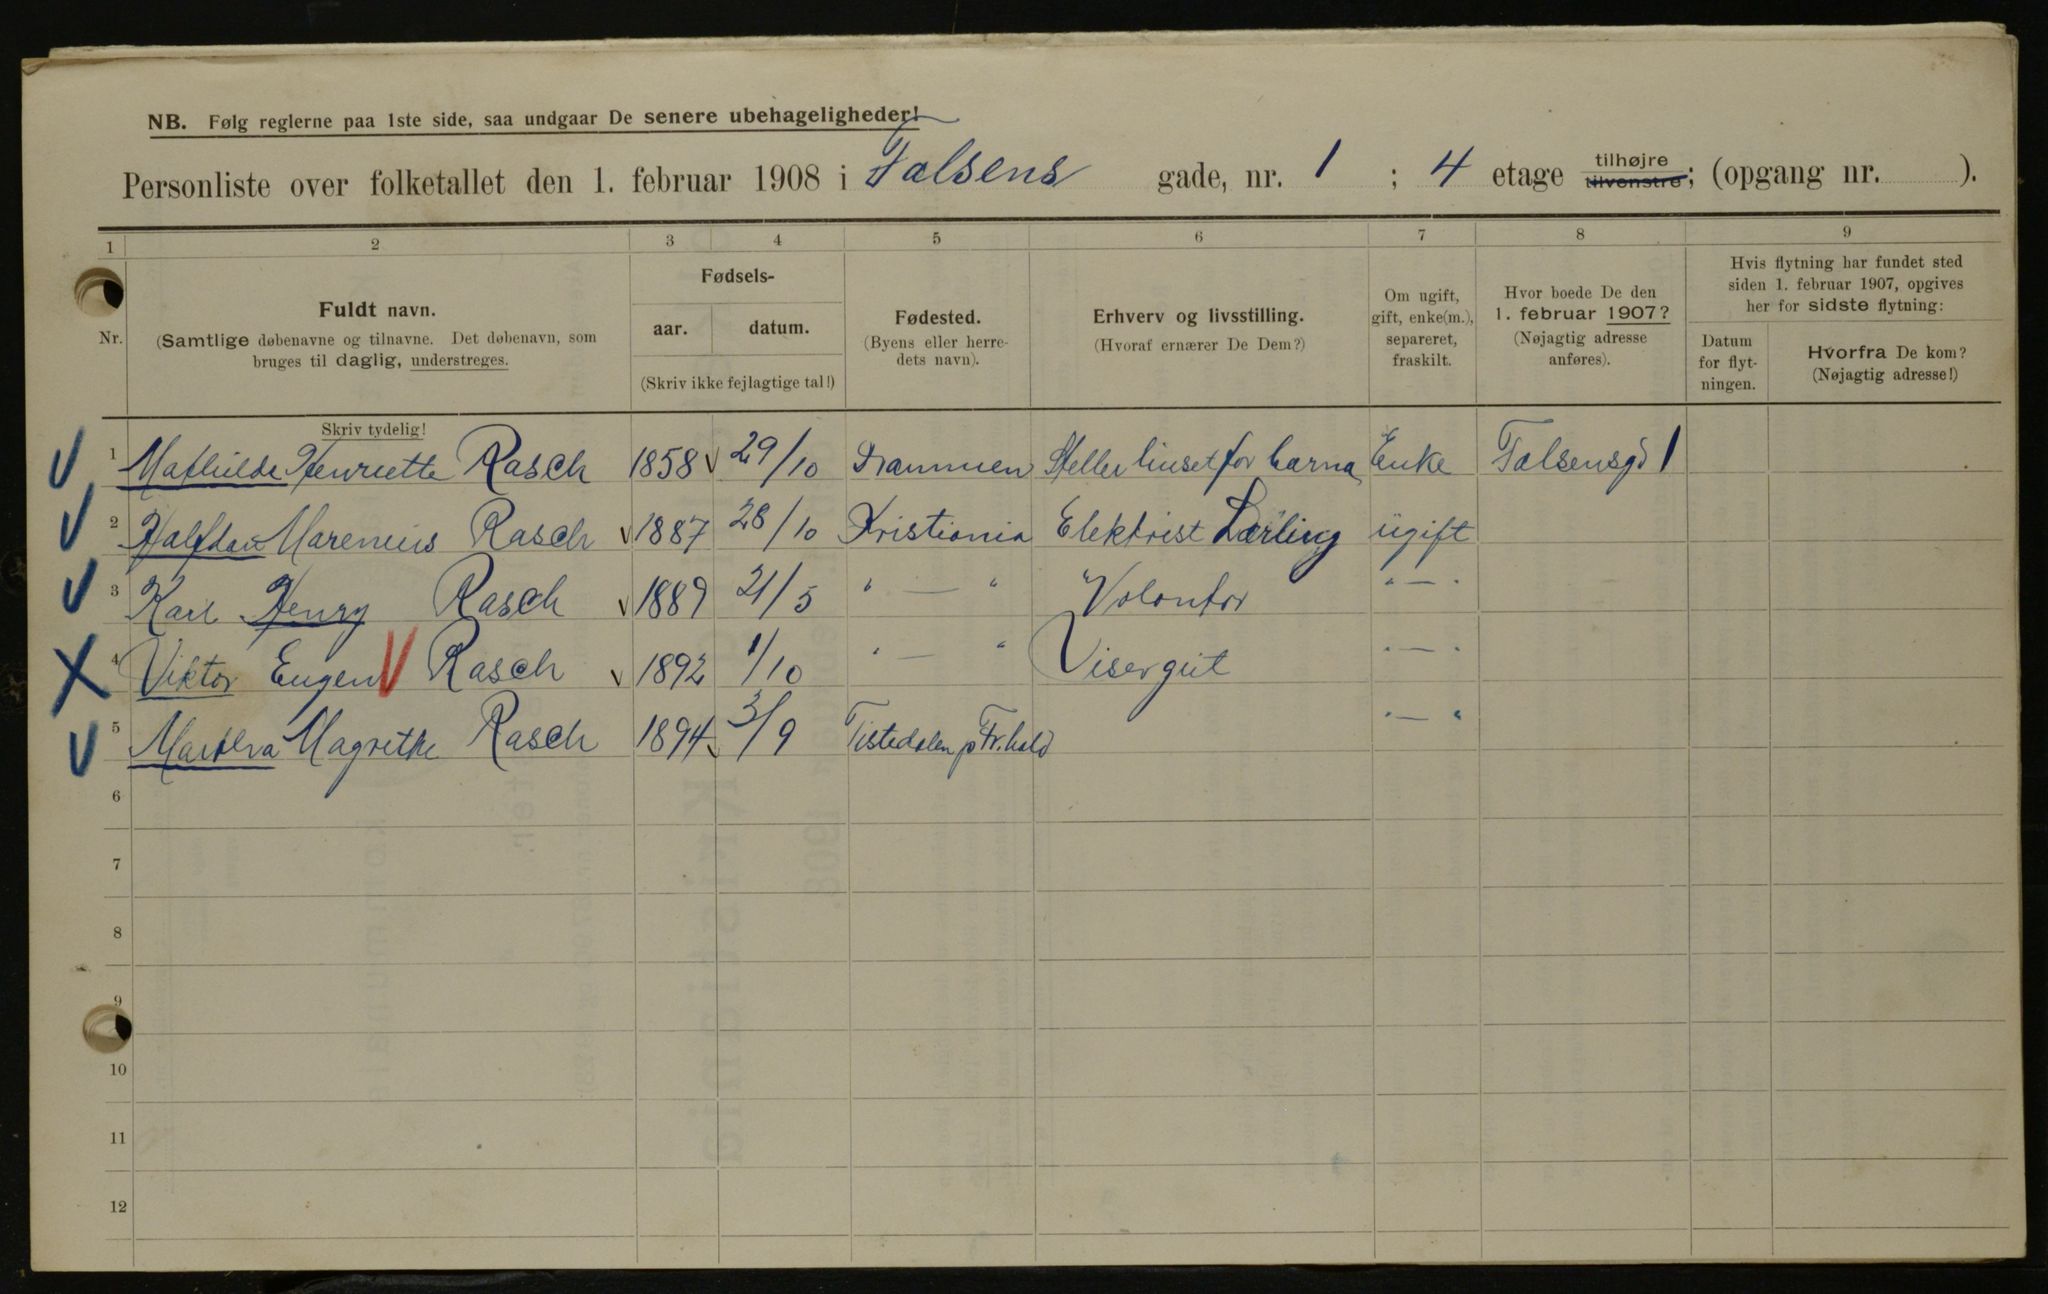 NB. Følg reglerne paa 1ste side, saa undgaar De senere ubehageligheder!
Personliste over folketallet den 1. februar 1908 i Falsens gade, nr. 1 ; 4 etage tilhøjre tilvenstre; (opgang nr. ).
1 2 3 4 5 6 7 8 9
Nr.
Fuldt navn.
(Samtlige døbenavne og tilnavne. Det døbenavn, som
bruges til daglig, understreges.
Skriv tydelig!
Fødsels-
aar. datum.
(Skriv ikke fejlagtige tal!)
Fødested.
(Byens eller herre-
dets navn).
Erhverv og livsstilling.
(Hvoraf ernærer De Dem?)
Om ugift,
gift, enke(m.),
separeret,
fraskilt.
Hvor boede De den
1. februar 1907?
(Nøjagtig adresse
anføres).
Hvis flytning har fundet sted
siden 1. februar 1907, opgives
her for sidste flytning:
Datum
for flyt-
ningen.
Hvorfra De kom?
(Nøjagtig adresse!)
1 Mathilde Henriette Rasch 1858 29/10 Drammen Steller huset for barna Enke Falsensgd 1
2 Halfdan Marenius Rasch 1887 28/10 Kristiania Elektrist Lærling ugift
3 Karl Henry Rasch 1889 21/5 " — " Volontør " — "
4 Viktor Eugen Rasch 1892 1/10 " — " Visergut " — "
5 Margrethe Rasch 1894 3/9 Tistedalen p Fr.hald " — "
6
7
8
9
10
11
12